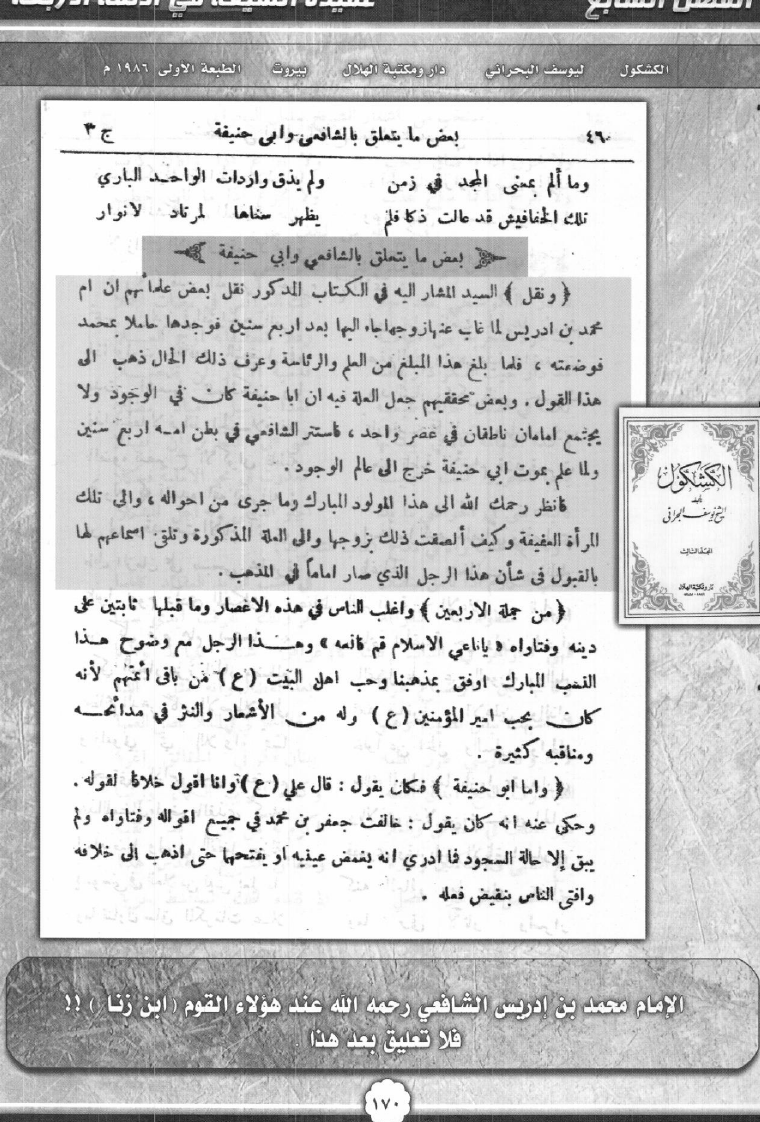 الفصل السابع
عقيدة الشيعة في الأئمة الأربعة
الكشكول ليوسف البحراني دار ومكتبة الهلال بيروت الطبعة الاولى ١٩٨٦ م
٤٦ بعض ما يتعلق بالشافعى وابى حنيفة ج ٣
وما ألم بمعنى المجد في زمن ولم يذق واردات الواحد الباري
تلك الخفافيش قد عالت ذكا فلم يظهر سناها لمرتاد لانوار
بعض ما يتعلق بالشافعي وابي حنيفة
﴿ ونقل ﴾ السيد المشار اليه في الكتاب المذكور نقل بعض علمائهم ان ام
محمد بن ادريس لما غاب عنها زوجها جاء اليها بعد اربع سنين فوجدها حاملا بمحمد
فوضعته ، فلما بلغ هذا المبلغ من العلم والرئاسة وعرف ذلك الحال ذهب الى
هذا القول . وبعض محققيهم جعل العلة فيه ان ابا حنيفة كان في الوجود ولا
يجتمع امامان ناطقان في عصر واحد ، فاستتر الشافعي في بطن امه اربع سنين
ولما علم بموت ابي حنيفة خرج الى عالم الوجود .
فانظر رحمك الله الى هذا المولود المبارك وما جرى من احواله ، والى تلك
المرأة العفيفة وكيف ألصقت ذلك بزوجها والى العلة المذكورة وتلقى اسماعهم لها
بالقبول فى شأن هذا الرجل الذي صار اماماً في المذهب .
﴿ من جملة الاربعين ﴾ واغلب الناس في هذه الاعصار وما قبلها ثابتين على
دينه وفتاواه « ياناعي الاسلام قم فانعه » وهذا الرجل مع وضوح هذا
النسب المبارك اوفق بمذهبنا وحب اهل البيت (ع) من باقى أئمتهم لأنه
كان يحب امير المؤمنين (ع) وله من الأشعار والنثر في مدائحه
ومناقبه كثيرة .
﴿ واما ابو حنيفة ﴾ فكان يقول : قال علي (ع) وانا اقول خلافا لقوله .
وحكى عنه انه كان يقول : خالفت جعفر بن محمد في جميع اقواله وفتاواه ولم
يبق إلا حالة السجود فما ادري انه يغمض عينيه او يفتحها حتى اذهب إلى خلافه
وافتى الناس بنقيض فعله .
الكشكول
تأليف
الشيخ يوسف البحراني
دار ومكتبة الهلال
الإمام محمد بن إدريس الشافعي رحمه الله عند هؤلاء القوم ( ابن زنا ) !!
فلا تعليق بعد هذا .
١٧٠